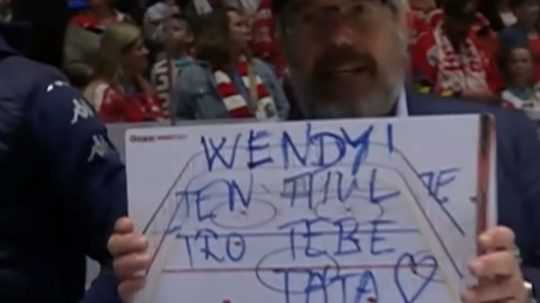 WENDY!
TEN TITUL JE
PRO TEBE
TATA♡